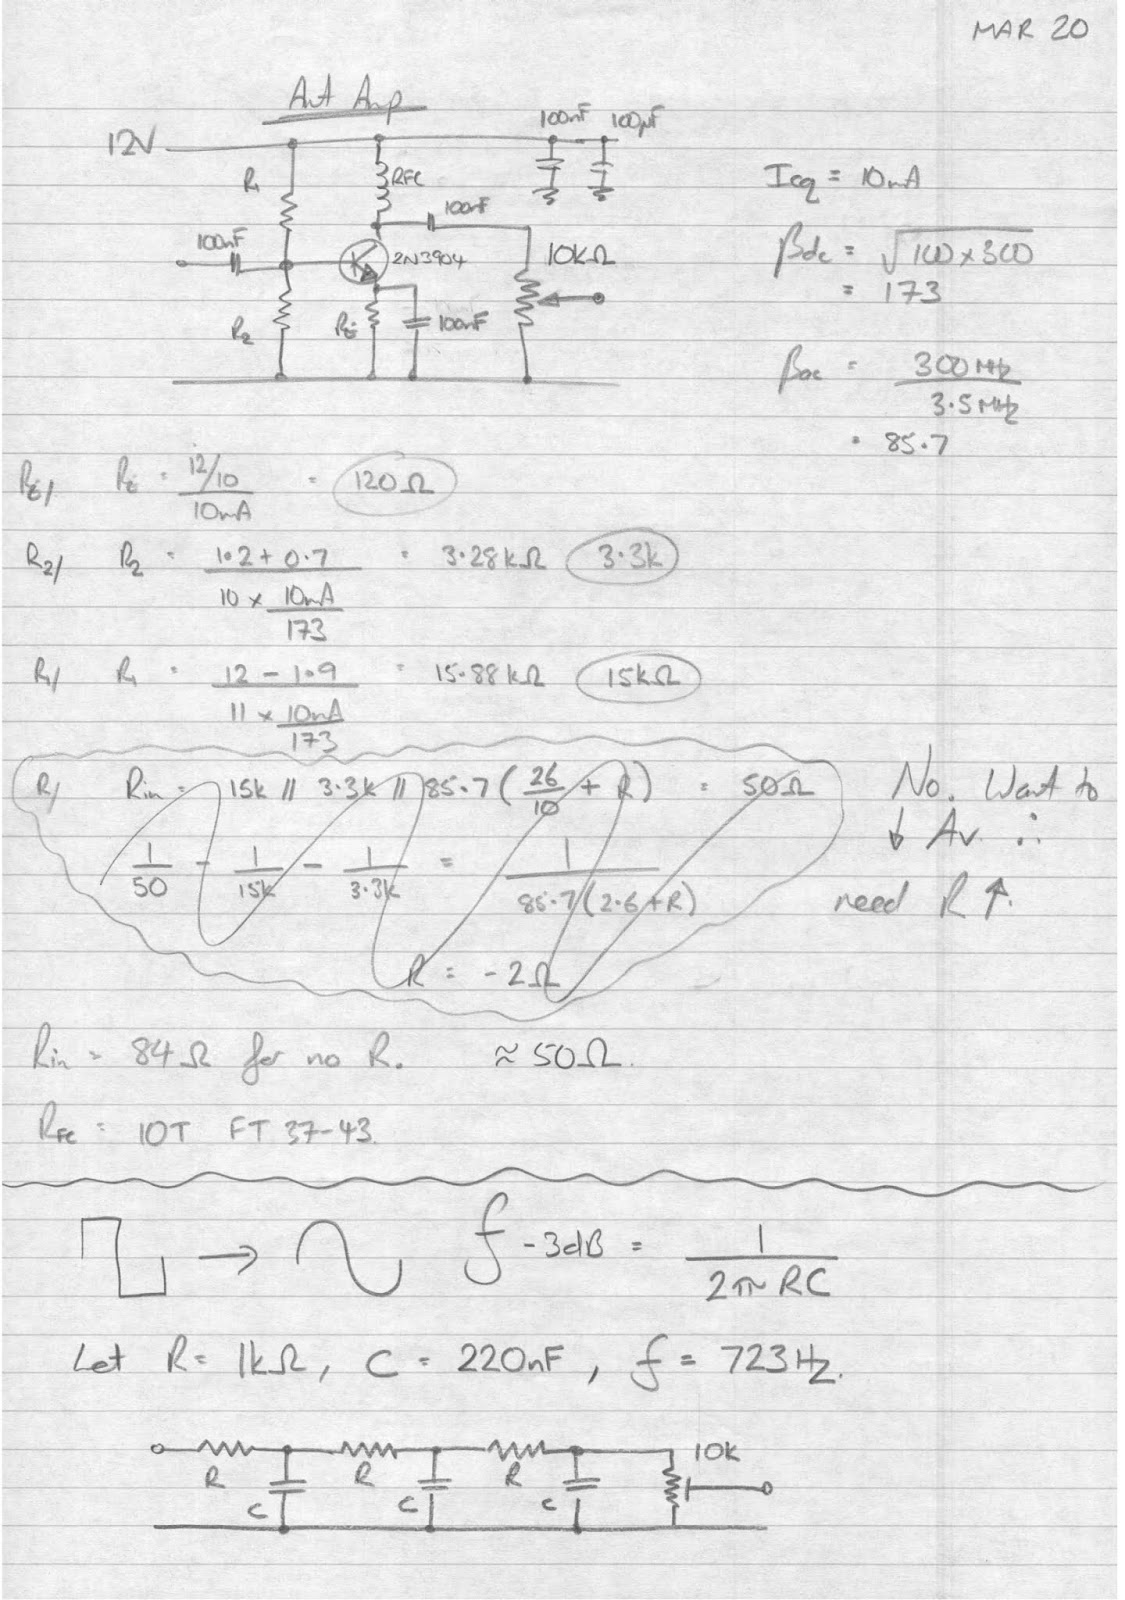 MAR 20
Ant Amp
12V
100nF 100µF
R1
RFC
100nF
100nF
2N3904
10kΩ
R2
RE
100nF
Icq = 10mA
βdc = √100 x 300
= 173
βac = 300 MHz / 3.5 MHz
= 85.7
RE/ RE = 12/10 / 10mA = 120Ω
R2/ R2 = 1.2 + 0.7 / 10 x 10mA/173 = 3.28kΩ 3.3k
R1/ R1 = 12 - 1.9 / 11 x 10mA/173 = 15.88kΩ 15kΩ
R/ Rin = 15k // 3.3k // 85.7 (26/10 + R) = 50Ω
1/50 - 1/15k - 1/3.3k = 1 / 85.7 (2.6 + R)
R = -2Ω
No. Want to
↓ Av ∴
need R ↑.
Rin = 84Ω for no R. ≈ 50Ω.
RFC = 10T FT 37-43.
→ f-3dB = 1 / 2π RC
Let R = 1kΩ, C = 220nF, f = 723Hz.
R R R 10k
C C C